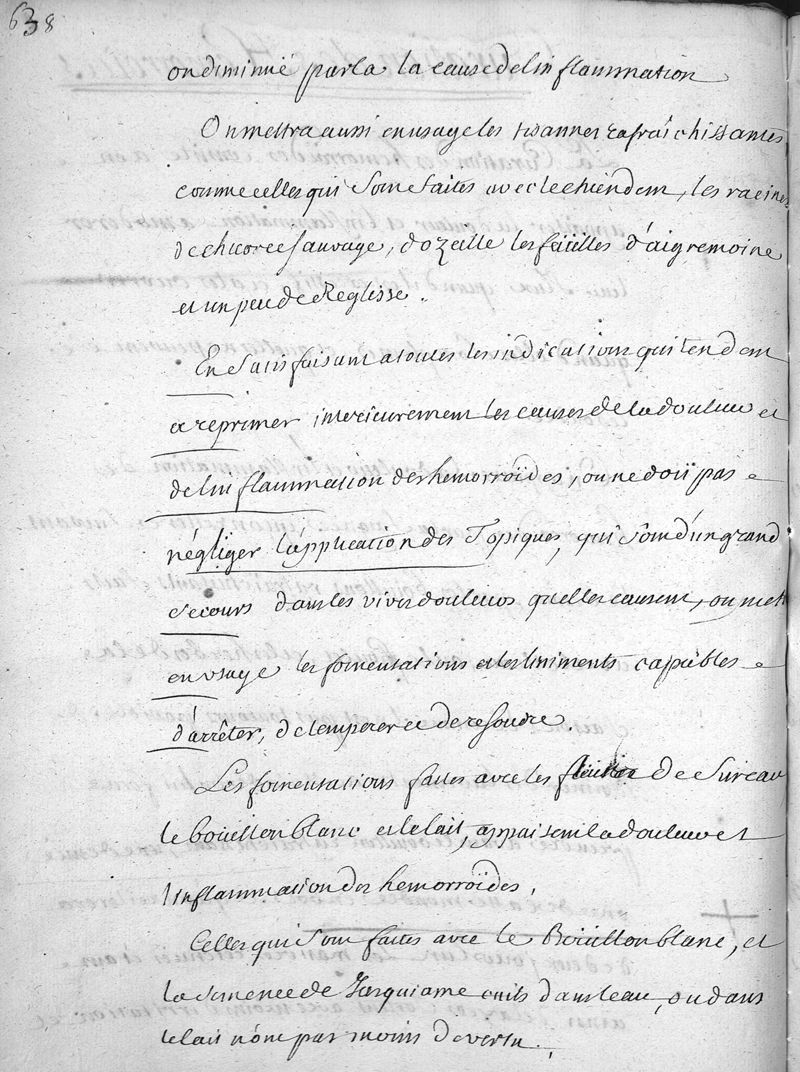 638
on diminuë par la la cause de linflammation
On mettra aussi en usage les tisannes rafraîchissantes
comme celles qui sont faites avec le chiendent, les racines
de chicorée sauvage, d'ozeille les feüilles d'aigremoine
et un peu de Reglisse.
En satisfaisant a toutes les indications qui tendent
a reprimer interieurement les causes de la douleur et
de linflammation des hemorroïdes, on ne doit pas
négliger l'application des Topiques, qui sont d'un grand
secours dans les vives douleurs quelles causent, on met
en usage les fomentations et les liniments capables
d'arrêter, de temperer et de resoudre.
Les fomentations faites avec les de sureau
le boüillon blanc et le lait, appaisent la douleur et
l'inflammation des hemorroïdes.
Celles qui sont faites avec le Boüillon blanc, et
la semence de Jusquiame cuits dans leau, ou dans
le lait n'ont pas moins de vertu.